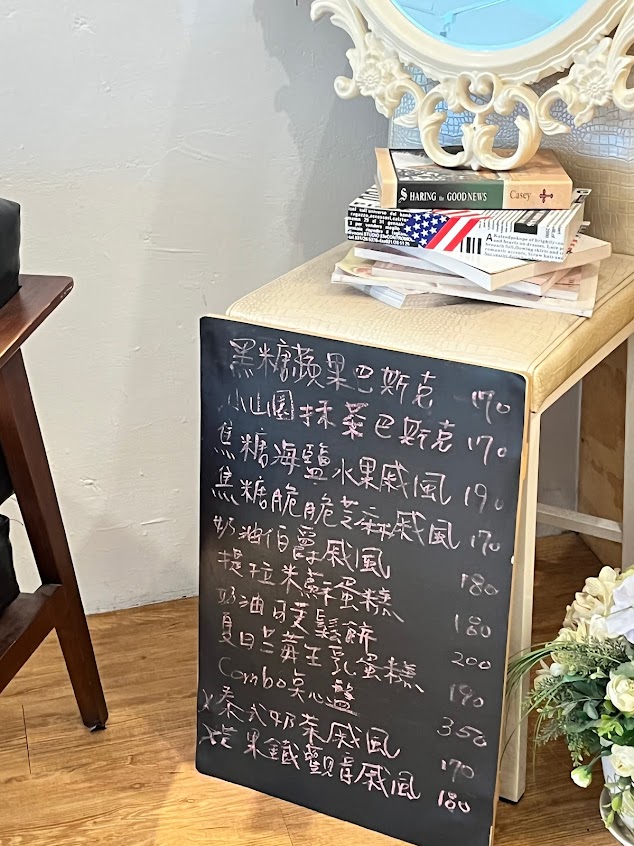 SHARING the GOOD NEWS Casey
黑糖蘋果巴斯克 170
小山園抹茶巴斯克 170
焦糖海鹽水果戚風 190
焦糖脆脆芝麻戚風 170
奶油伯爵戚風 180
提拉米蘇蛋糕 180
奶油 鬆餅 200
夏日芒 王乳蛋糕 190
Combo點心盤 350
x 泰式奶茶戚風 170
x 果鐵觀音戚風 180